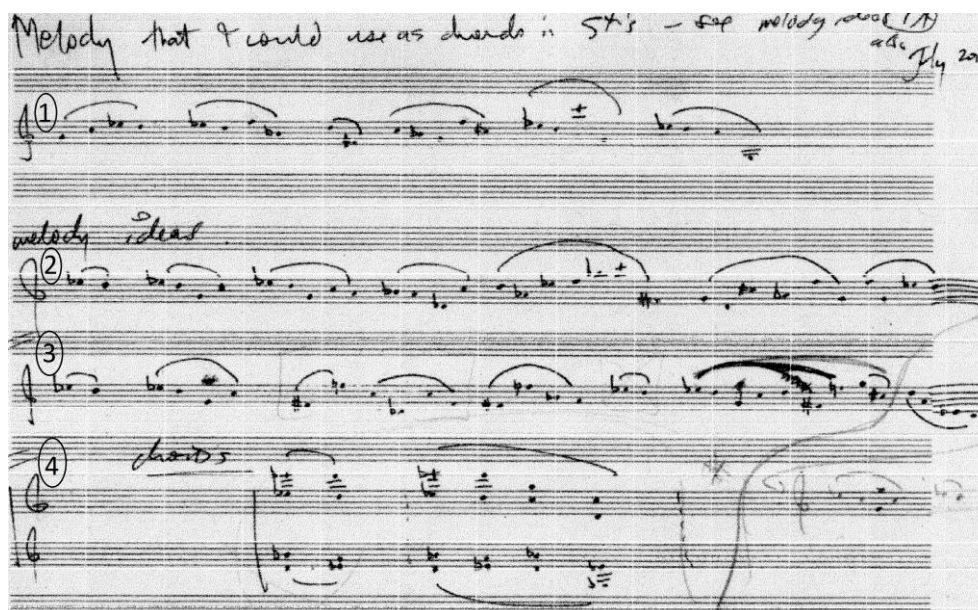 Melody that I could use as chords in 5ths – see melody ideas (A)
also
July 20
①
melody ideas.
②
③
④ chords